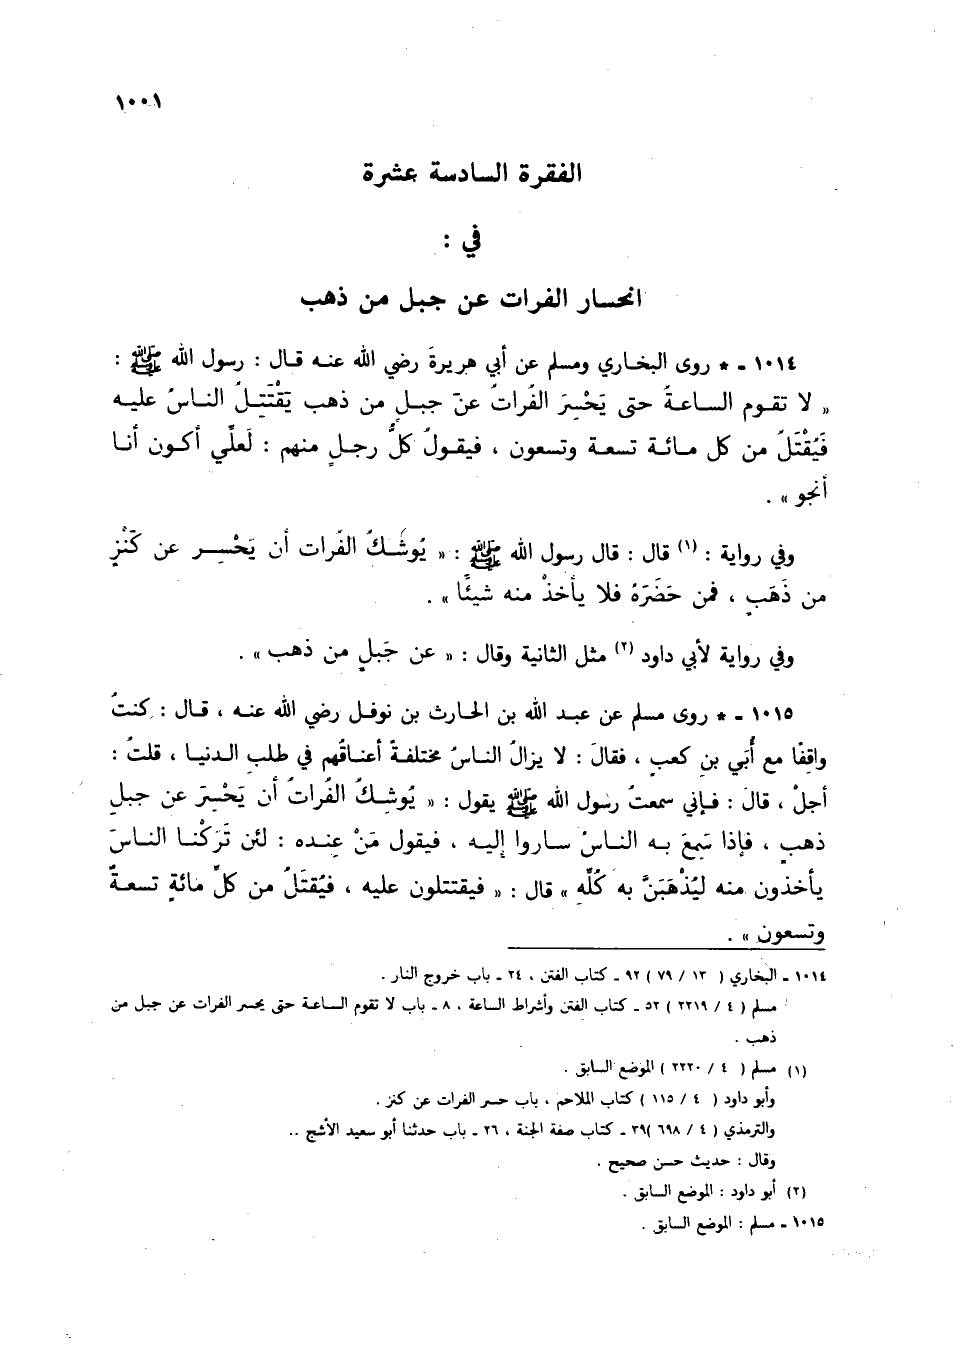 ١٠٠١
الفقرة السادسة عشرة
في :
انحسار الفرات عن جبل من ذهب
١٠١٤ - * روى البخاري ومسلم عن أبي هريرةَ رضي الله عنه قال : رسول الله ﷺ :
« لا تقوم الساعةُ حتى يَحْسِرَ الفُراتُ عنْ جبلٍ من ذهب يَقْتَتِلُ الناسُ عليه
فَيُقْتَلُ من كل مائة تسعة وتسعون ، فيقولُ كلُّ رجلٍ منهم : لَعلِّي أكون أنا
أنجو » .
وفي رواية : (١) قال : قال رسول الله ﷺ : « يُوشكُ الفُرات أن يَحْسِر عن كَنْزٍ
من ذَهَبٍ ، فمن حَضَرَهُ فلا يأخذْ منه شيئًا » .
وفي رواية لأبي داود (٢) مثل الثانية وقال : « عن جَبلٍ من ذهب » .
١٠١٥ - * روى مسلم عن عبد الله بن الحارث بن نوفل رضي الله عنه ، قال : كنتُ
واقفًا مع أُبَي بن كعبٍ ، فقالَ : لا يزالُ الناسُ مختلفةً أعناقُهم في طلبِ الدنيا ، قلتُ :
أجلْ ، قالَ : فإني سمعتُ رسول الله ﷺ يقول : « يُوشِكُ الفُراتُ أن يَحْسِرَ عن جبلٍ
ذهبٍ ، فإذا سَمِعَ به الناسُ ساروا إليه ، فيقول مَنْ عِنده : لئن تَرَكْنا الناسَ
يأخذون منه لَيُذْهَبَنَّ به كُلِّه » قال : « فيقتتلون عليه ، فيُقتَلُ من كلِّ مائةٍ تسعةٌ
وتسعون » .
١٠١٤ - البخاري ( ١٣ / ٧٩ ) ٩٢ - كتاب الفتن ، ٢٤ - باب خروج النار .
مسلم ( ٤ / ٢٢١٩ ) ٥٢ - كتاب الفتن وأشراط الساعة ، ٨ - باب لا تقوم الساعة حتى يحسر الفرات عن جبل من
ذهب .
(١) مسلم ( ٤ / ٢٢٢٠ ) الموضع السابق .
وأبو داود ( ٤ / ١١٥ ) كتاب الملاحم ، باب حسر الفرات عن كنز .
والترمذي ( ٤ / ٦٩٨ )٣٩ - كتاب صفة الجنة ، ٢٦ - باب حدثنا أبو سعيد الأشج ..
وقال : حديث حسن صحيح .
(٢) أبو داود : الموضع السابق .
١٠١٥ - مسلم : الموضع السابق .